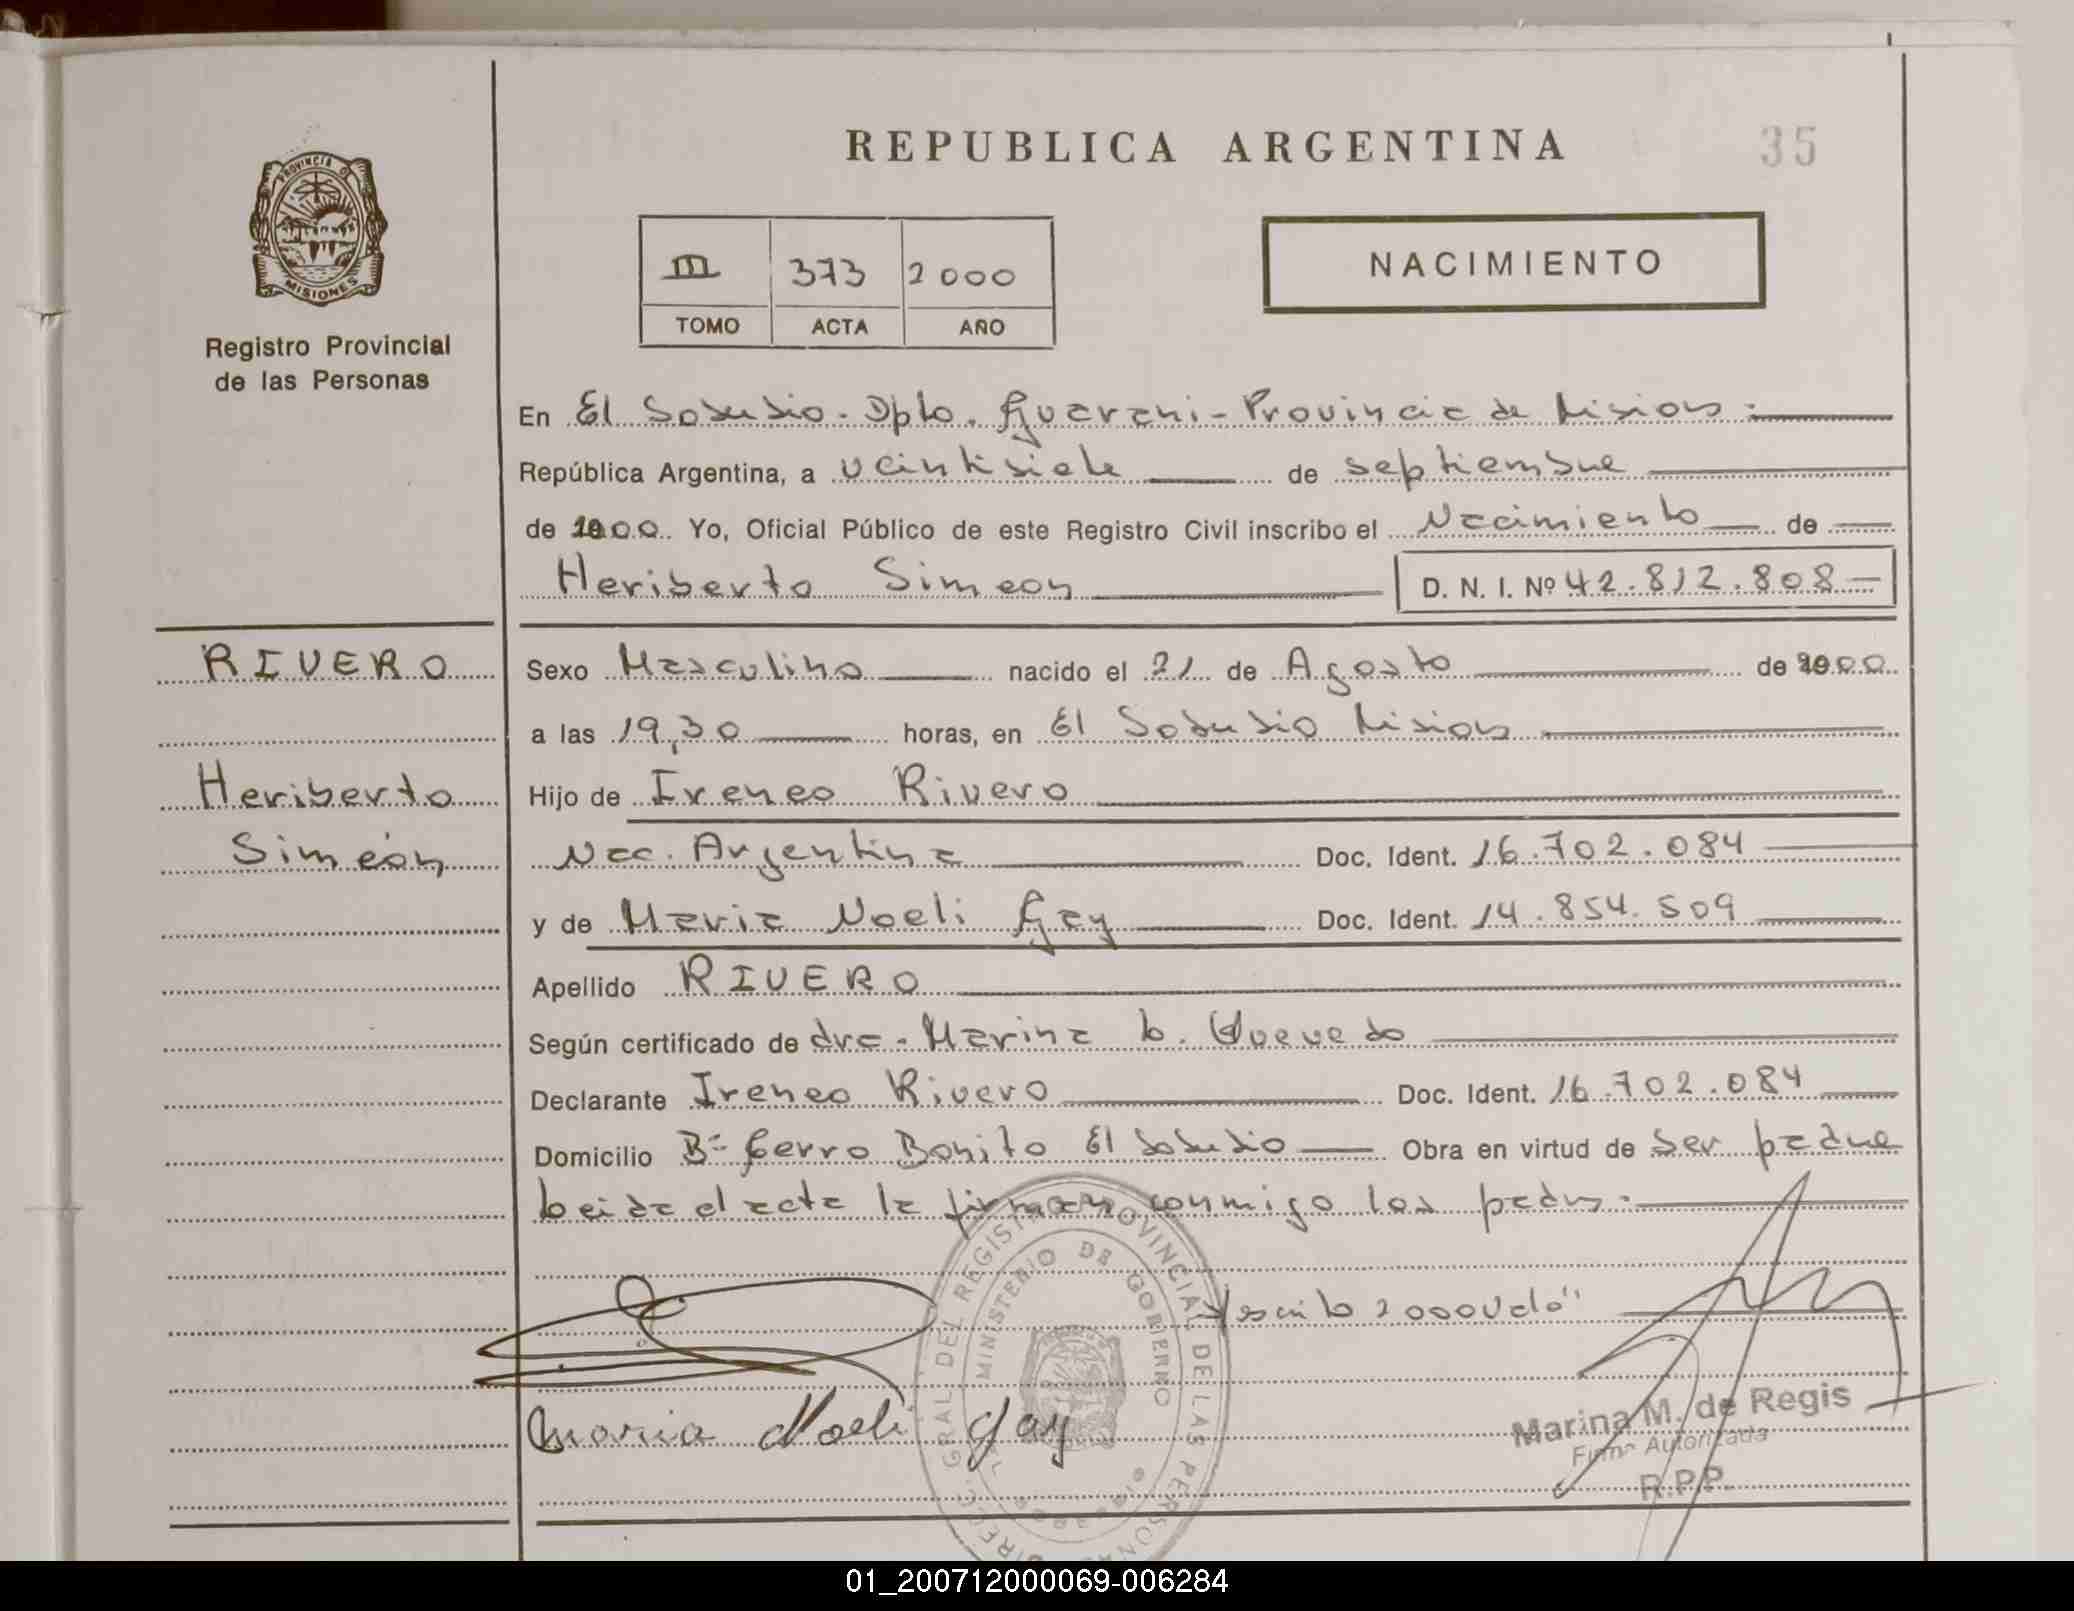 REPUBLICA ARGENTINA
35
PROVINCIA DE
MISIONES
Registro Provincial
de las Personas
III 373 2000
TOMO ACTA AÑO
NACIMIENTO
En El Soberbio - Dpto. Guarani - Provincia de Misiones.
República Argentina, a veintisiete de septiembre
de 2000. Yo, Oficial Público de este Registro Civil inscribo el Nacimiento de
Heriberto Simeon D. N. I. Nº 42.812.808
RIVERO
Sexo Masculino nacido el 21 de Agosto de 2000
a las 19,30 horas, en El Soberbio Misiones
Heriberto
Simeón
Hijo de Ireneo Rivero
Nac. Argentina Doc. Ident. 16.702.084
y de Maria Noeli Gay Doc. Ident. 14.854.509
Apellido RIVERO
Según certificado de dra. Marina L. Quevedo
Declarante Ireneo Rivero Doc. Ident. 16.702.084
Domicilio Bº Cerro Bonito El Soberbio Obra en virtud de ser padre
Leida el acta la firman conmigo los padres.
2000 Vale"
Maria Noeli Gay
DIRECC. GRAL. DEL REGISTRO PROVINCIAL DE LAS PERSONAS
MINISTERIO DE GOBIERNO
Marina M. de Regis
Firma Autorizada
R.P.P.
01_200712000069-006284